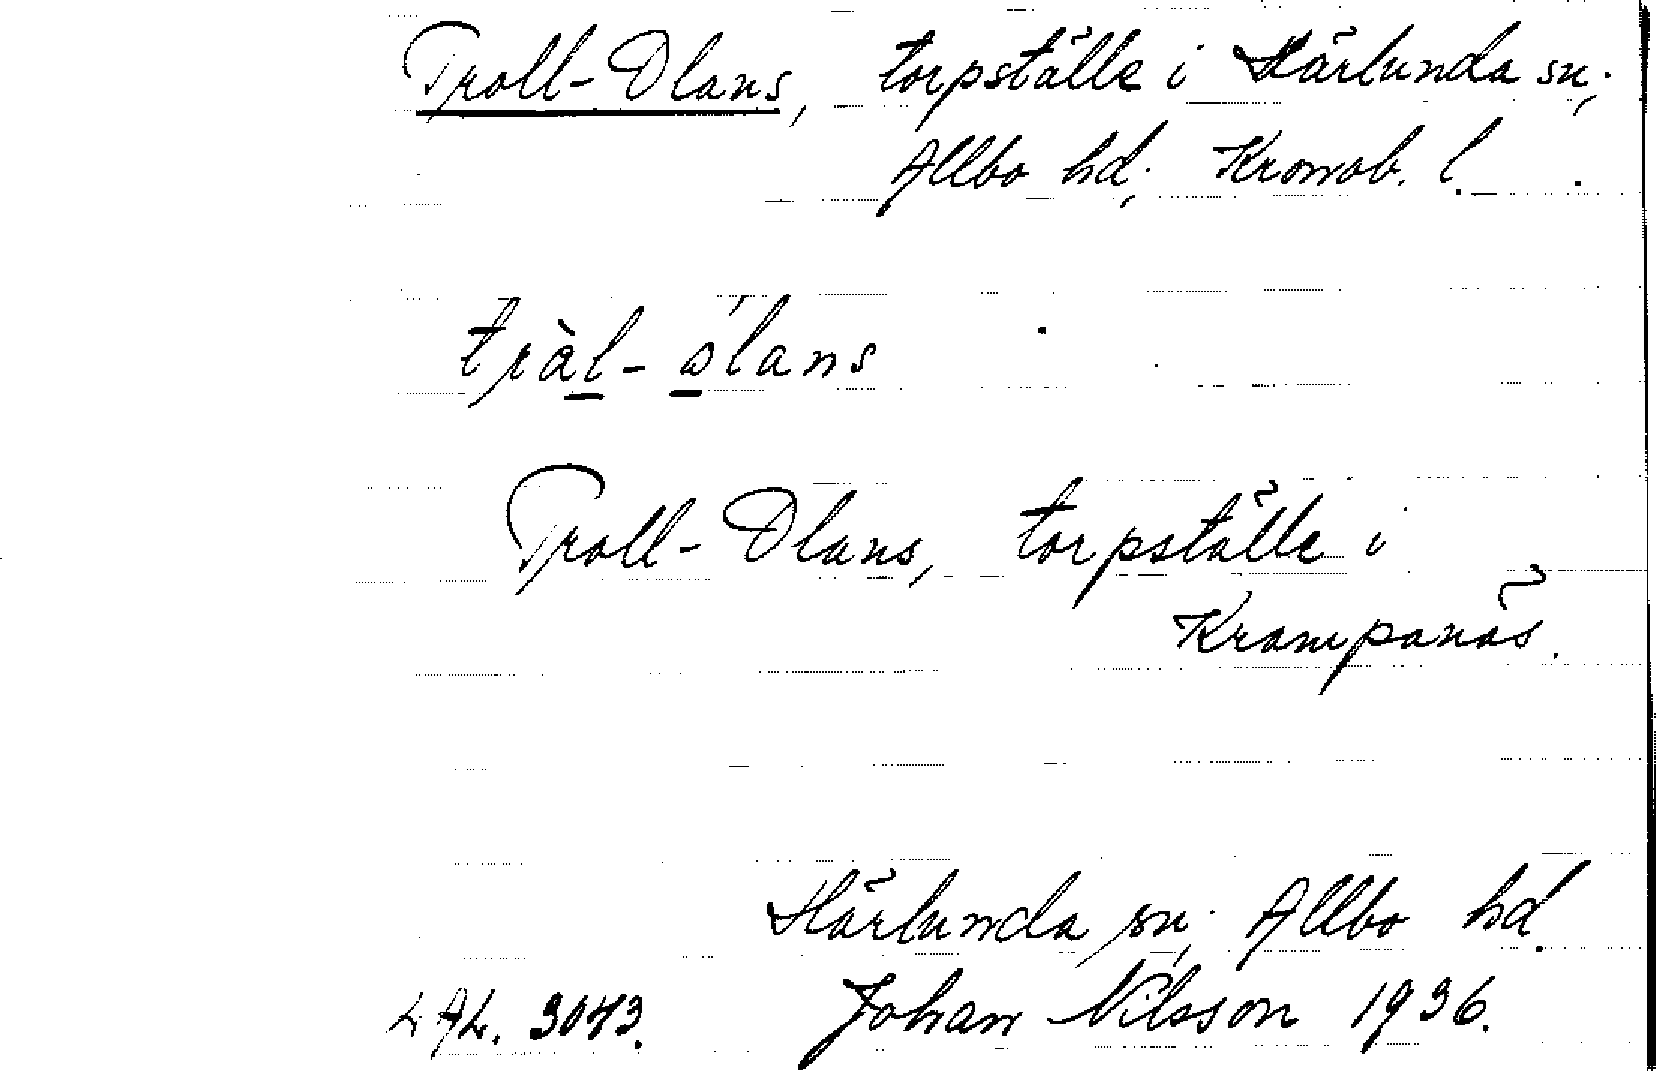 Troll-Olans, torpställe i Härlunda sn;
Allbo hd; Kronob. l.
tràl-ólans
Troll-Olans, torpställe i
Krampanäs.
Härlunda sn; Allbo hd.
LAL. 3043. Johan Nilsson 1936.